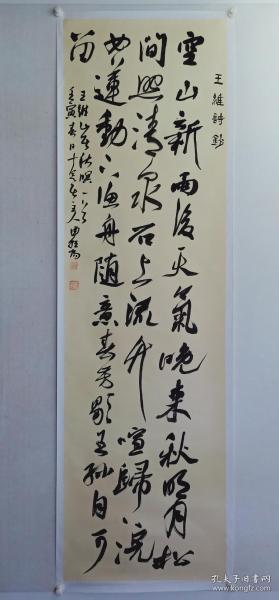 王維詩鈔
空山新雨後天氣晚来秋明月松
間照清泉石上流竹喧歸浣
女蓮動下漁舟随意春芳歇王孙自可
留
王維山居秋暝一首
壬寅春日
孔夫子旧书网